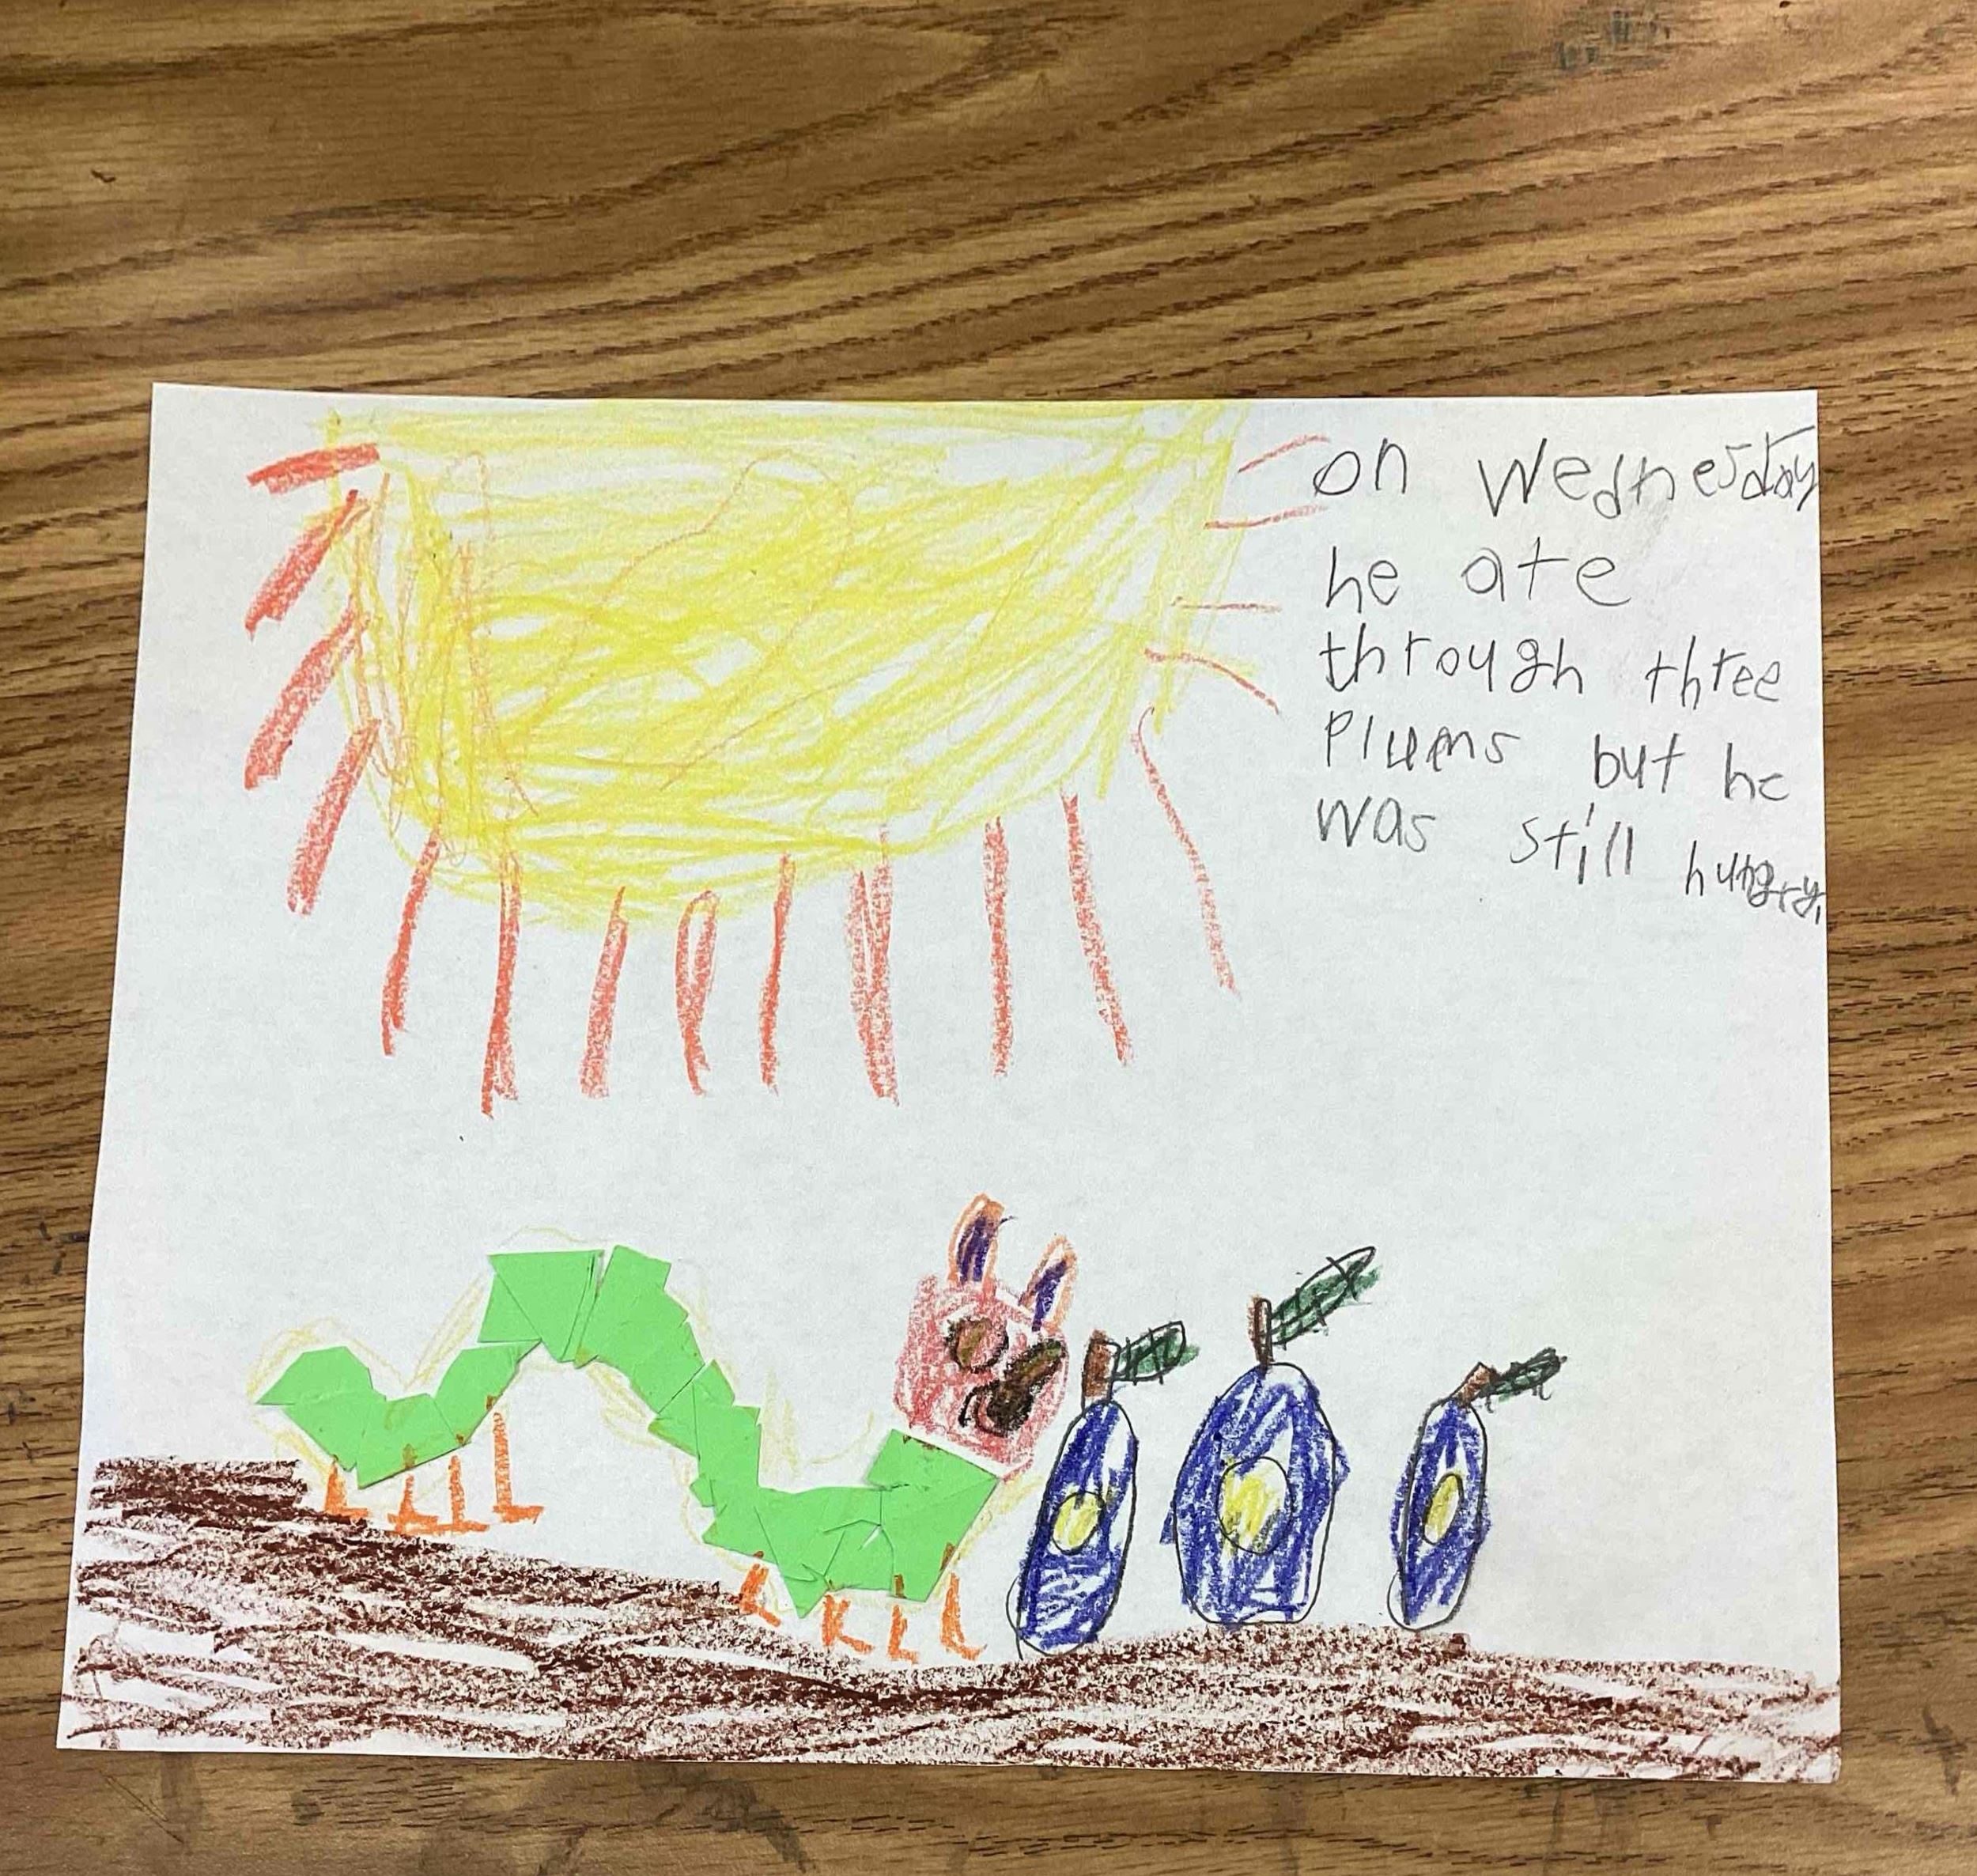 on Wednesday
he ate
through three
Plums but he
was still hungry.